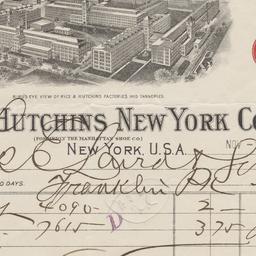 BIRD'S EYE VIEW OF RICE & HUTCHINS FACTORIES AND TANNERIES.
HUTCHINS NEW YORK CO
(FORMERLY THE MANHATTAN SHOE CO.)
NEW YORK, U.S.A.
NOV -
C Laird
O DAYS.
Franklin
4090 2
7615 3 75
D